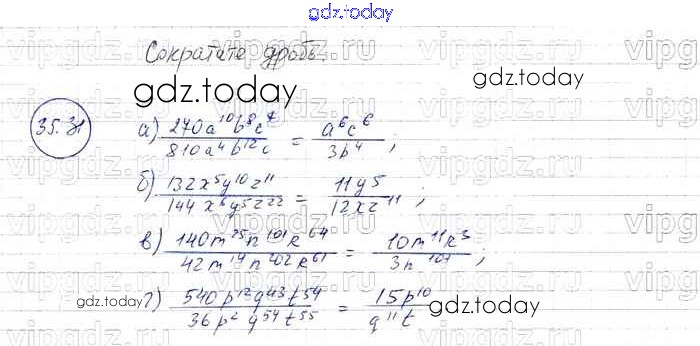 gdz.today
Сократите дробь.
gdz.today
gdz.today
35.31
а) 270a¹⁰b⁸c⁷ / 810a⁴b¹²c = a⁶c⁶ / 3b⁴ ;
б) 132x⁵y¹⁰z¹¹ / 144x⁶y⁵z²² = 11y⁵ / 12xz¹¹ ;
в) 140m²⁵n¹⁰¹k⁶⁴ / 42m¹⁴n²⁰²k⁶¹ = 10m¹¹k³ / 3n¹⁰¹ ;
gdz.today
г) 540p¹²q⁴³t⁵⁴ / 36p²q⁵⁴t⁵⁵ = 15p¹⁰ / q¹¹t
gdz.today
vipgdz.ru